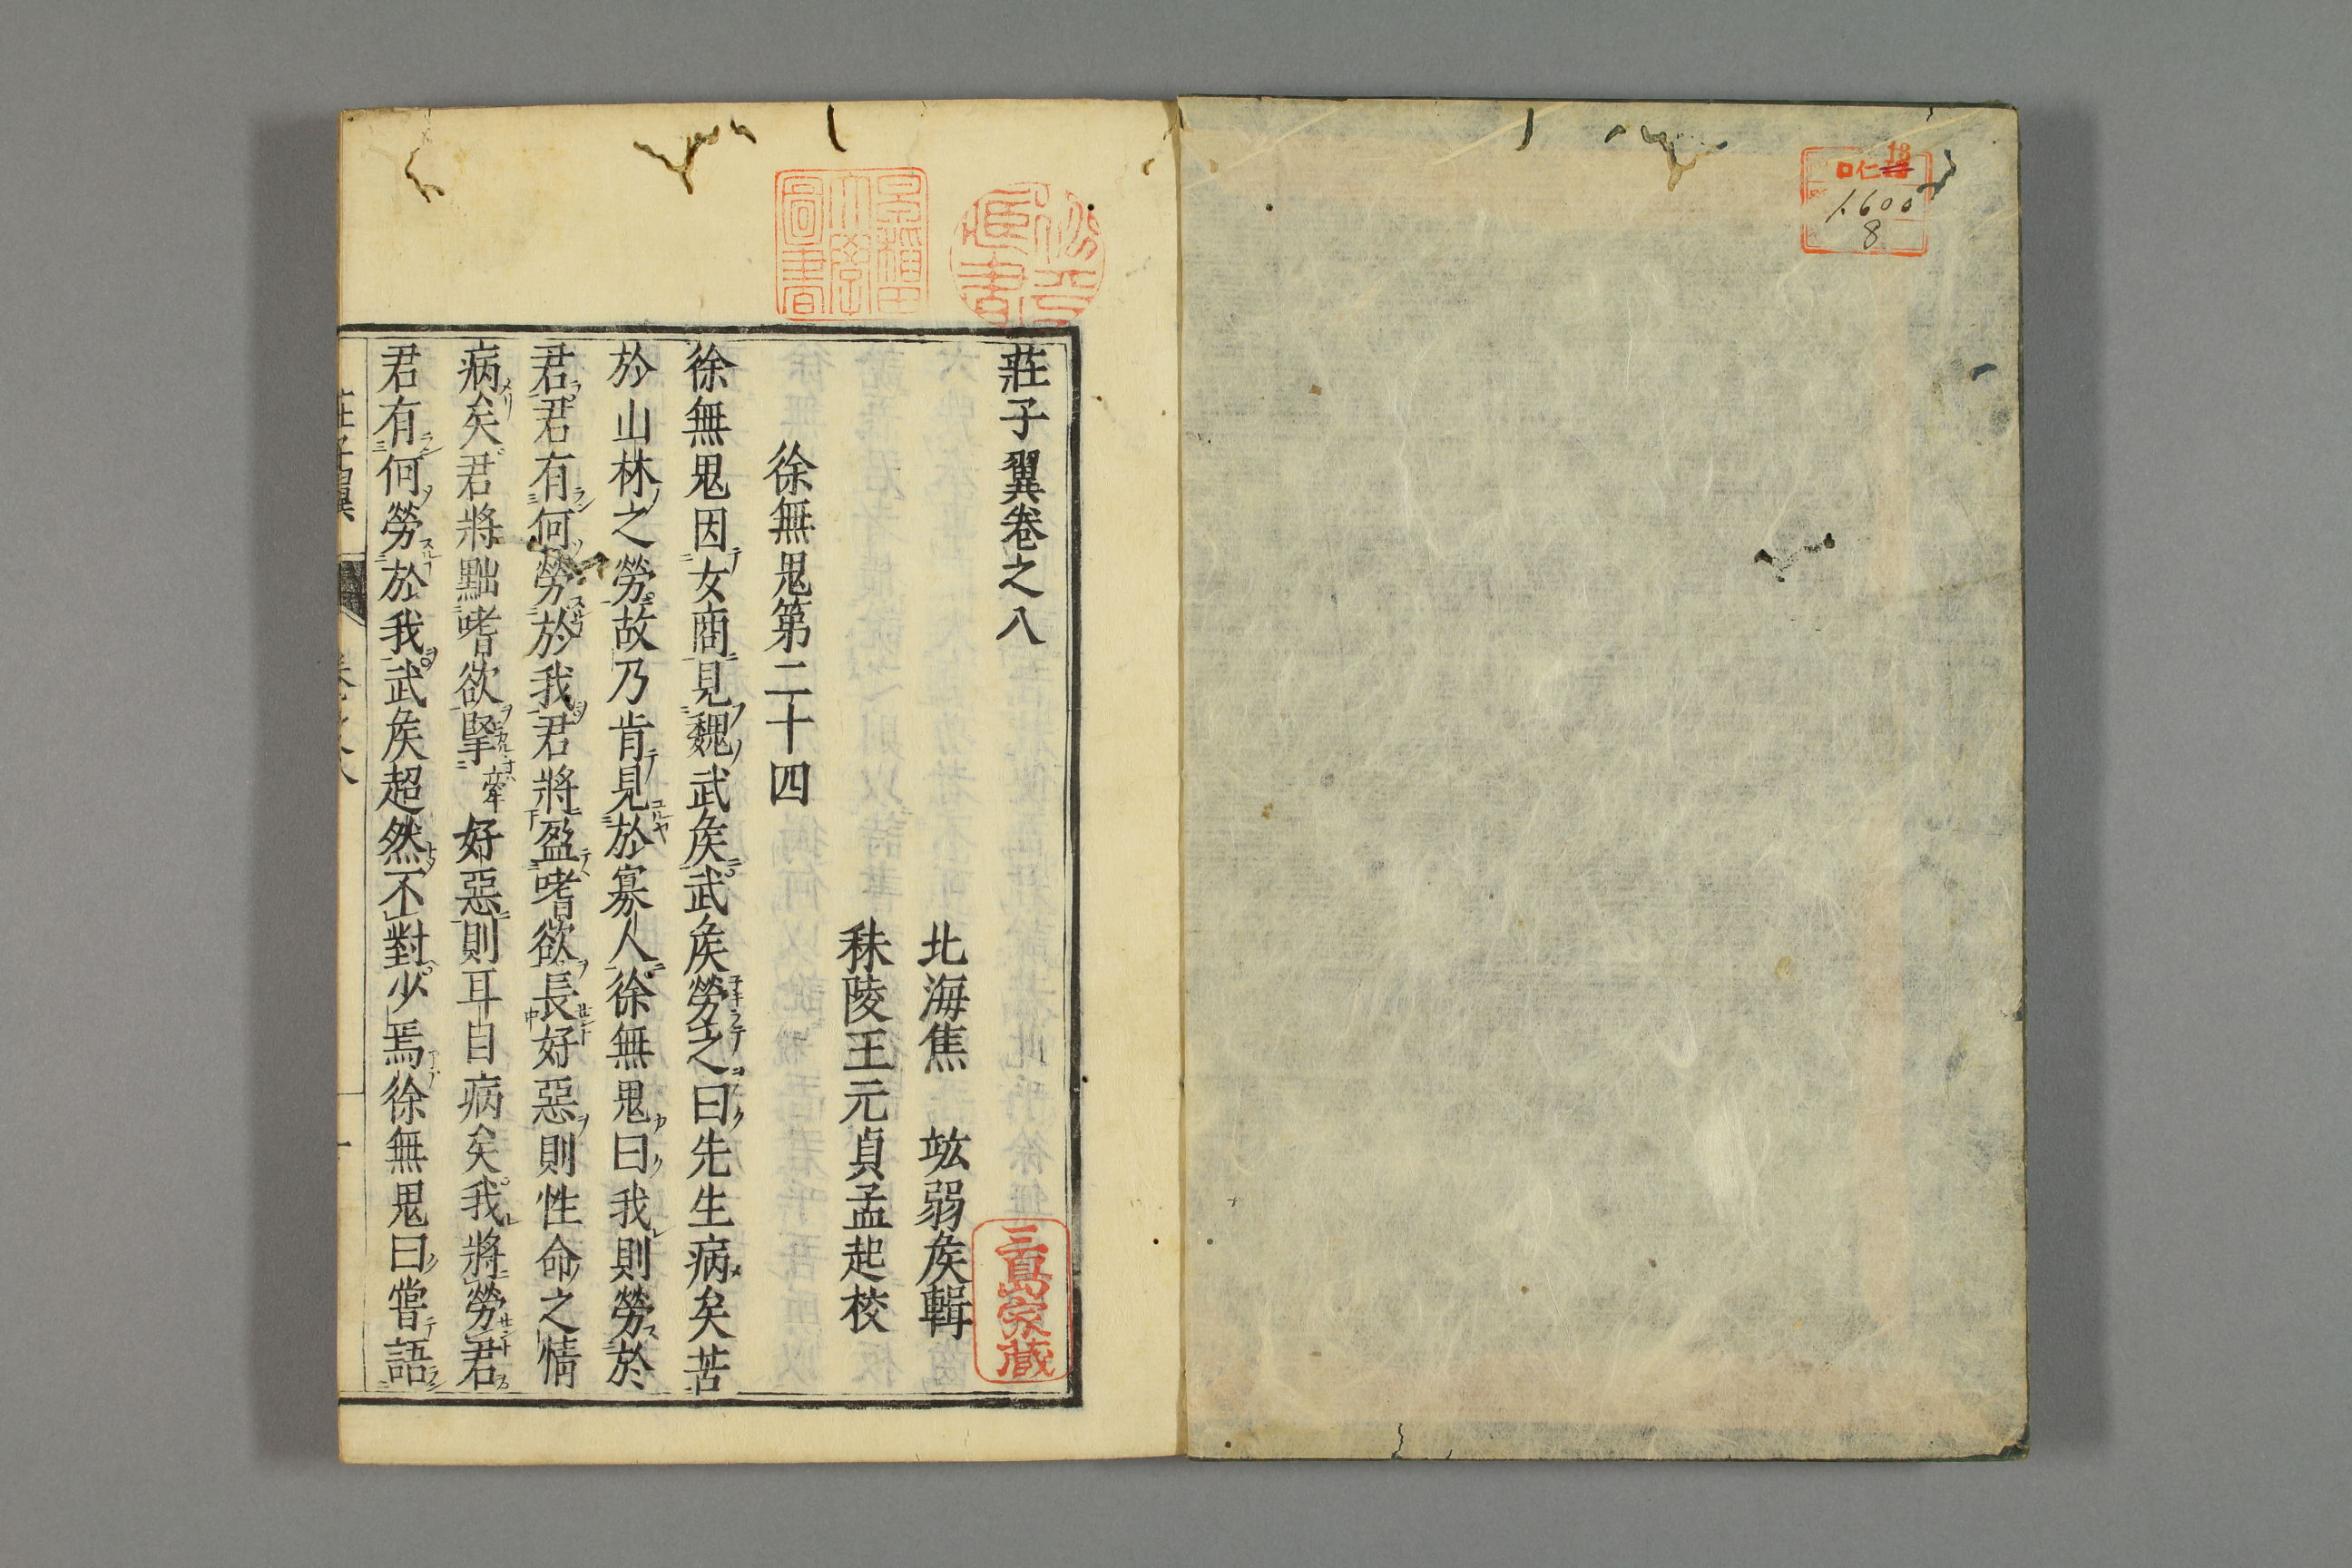 ロ仁13
1600
8
莊子翼卷之八
北海焦 竑弱矦輯
秣陵王元貞孟起校
徐無鬼第二十四
徐無鬼因女商見魏武矦武矦勞之曰先生病矣苦
於山林之勞故乃肯見於寡人徐無鬼曰我則勞於
君君有何勞於我君將盈嗜欲長好惡則性命之情
病矣君將黜嗜欲掔牽好惡則耳目病矣我將勞君
君有何勞於我武矦超然不對少焉徐無鬼曰嘗語
莊子翼 卷之八 一
早稲田大學圖書
三島家藏